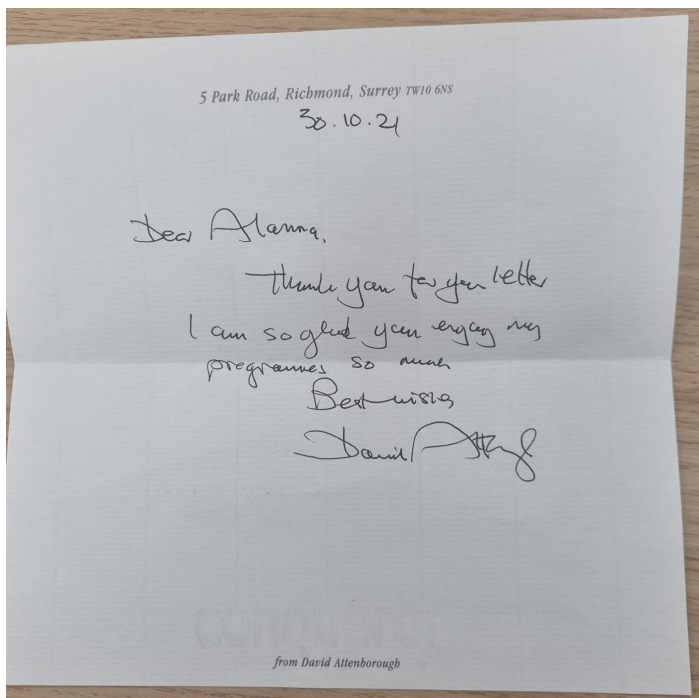 5 Park Road, Richmond, Surrey TW10 6NS
30.10.21
Dear Alanna,
Thank you for your letter
I am so glad you enjoy my
programmes so much
Best wishes
David Attenborough
conqueror
from David Attenborough